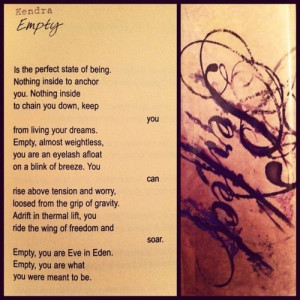 Kendra
Empty
Is the perfect state of being.
Nothing inside to anchor
you. Nothing inside
to chain you down, keep
you
from living your dreams.
Empty, almost weightless,
you are an eyelash afloat
on a blink of breeze. You
can
rise above tension and worry,
loosed from the grip of gravity.
Adrift in thermal lift, you
ride the wing of freedom and
soar.
Empty, you are Eve in Eden.
Empty, you are what
you were meant to be.
Perfect